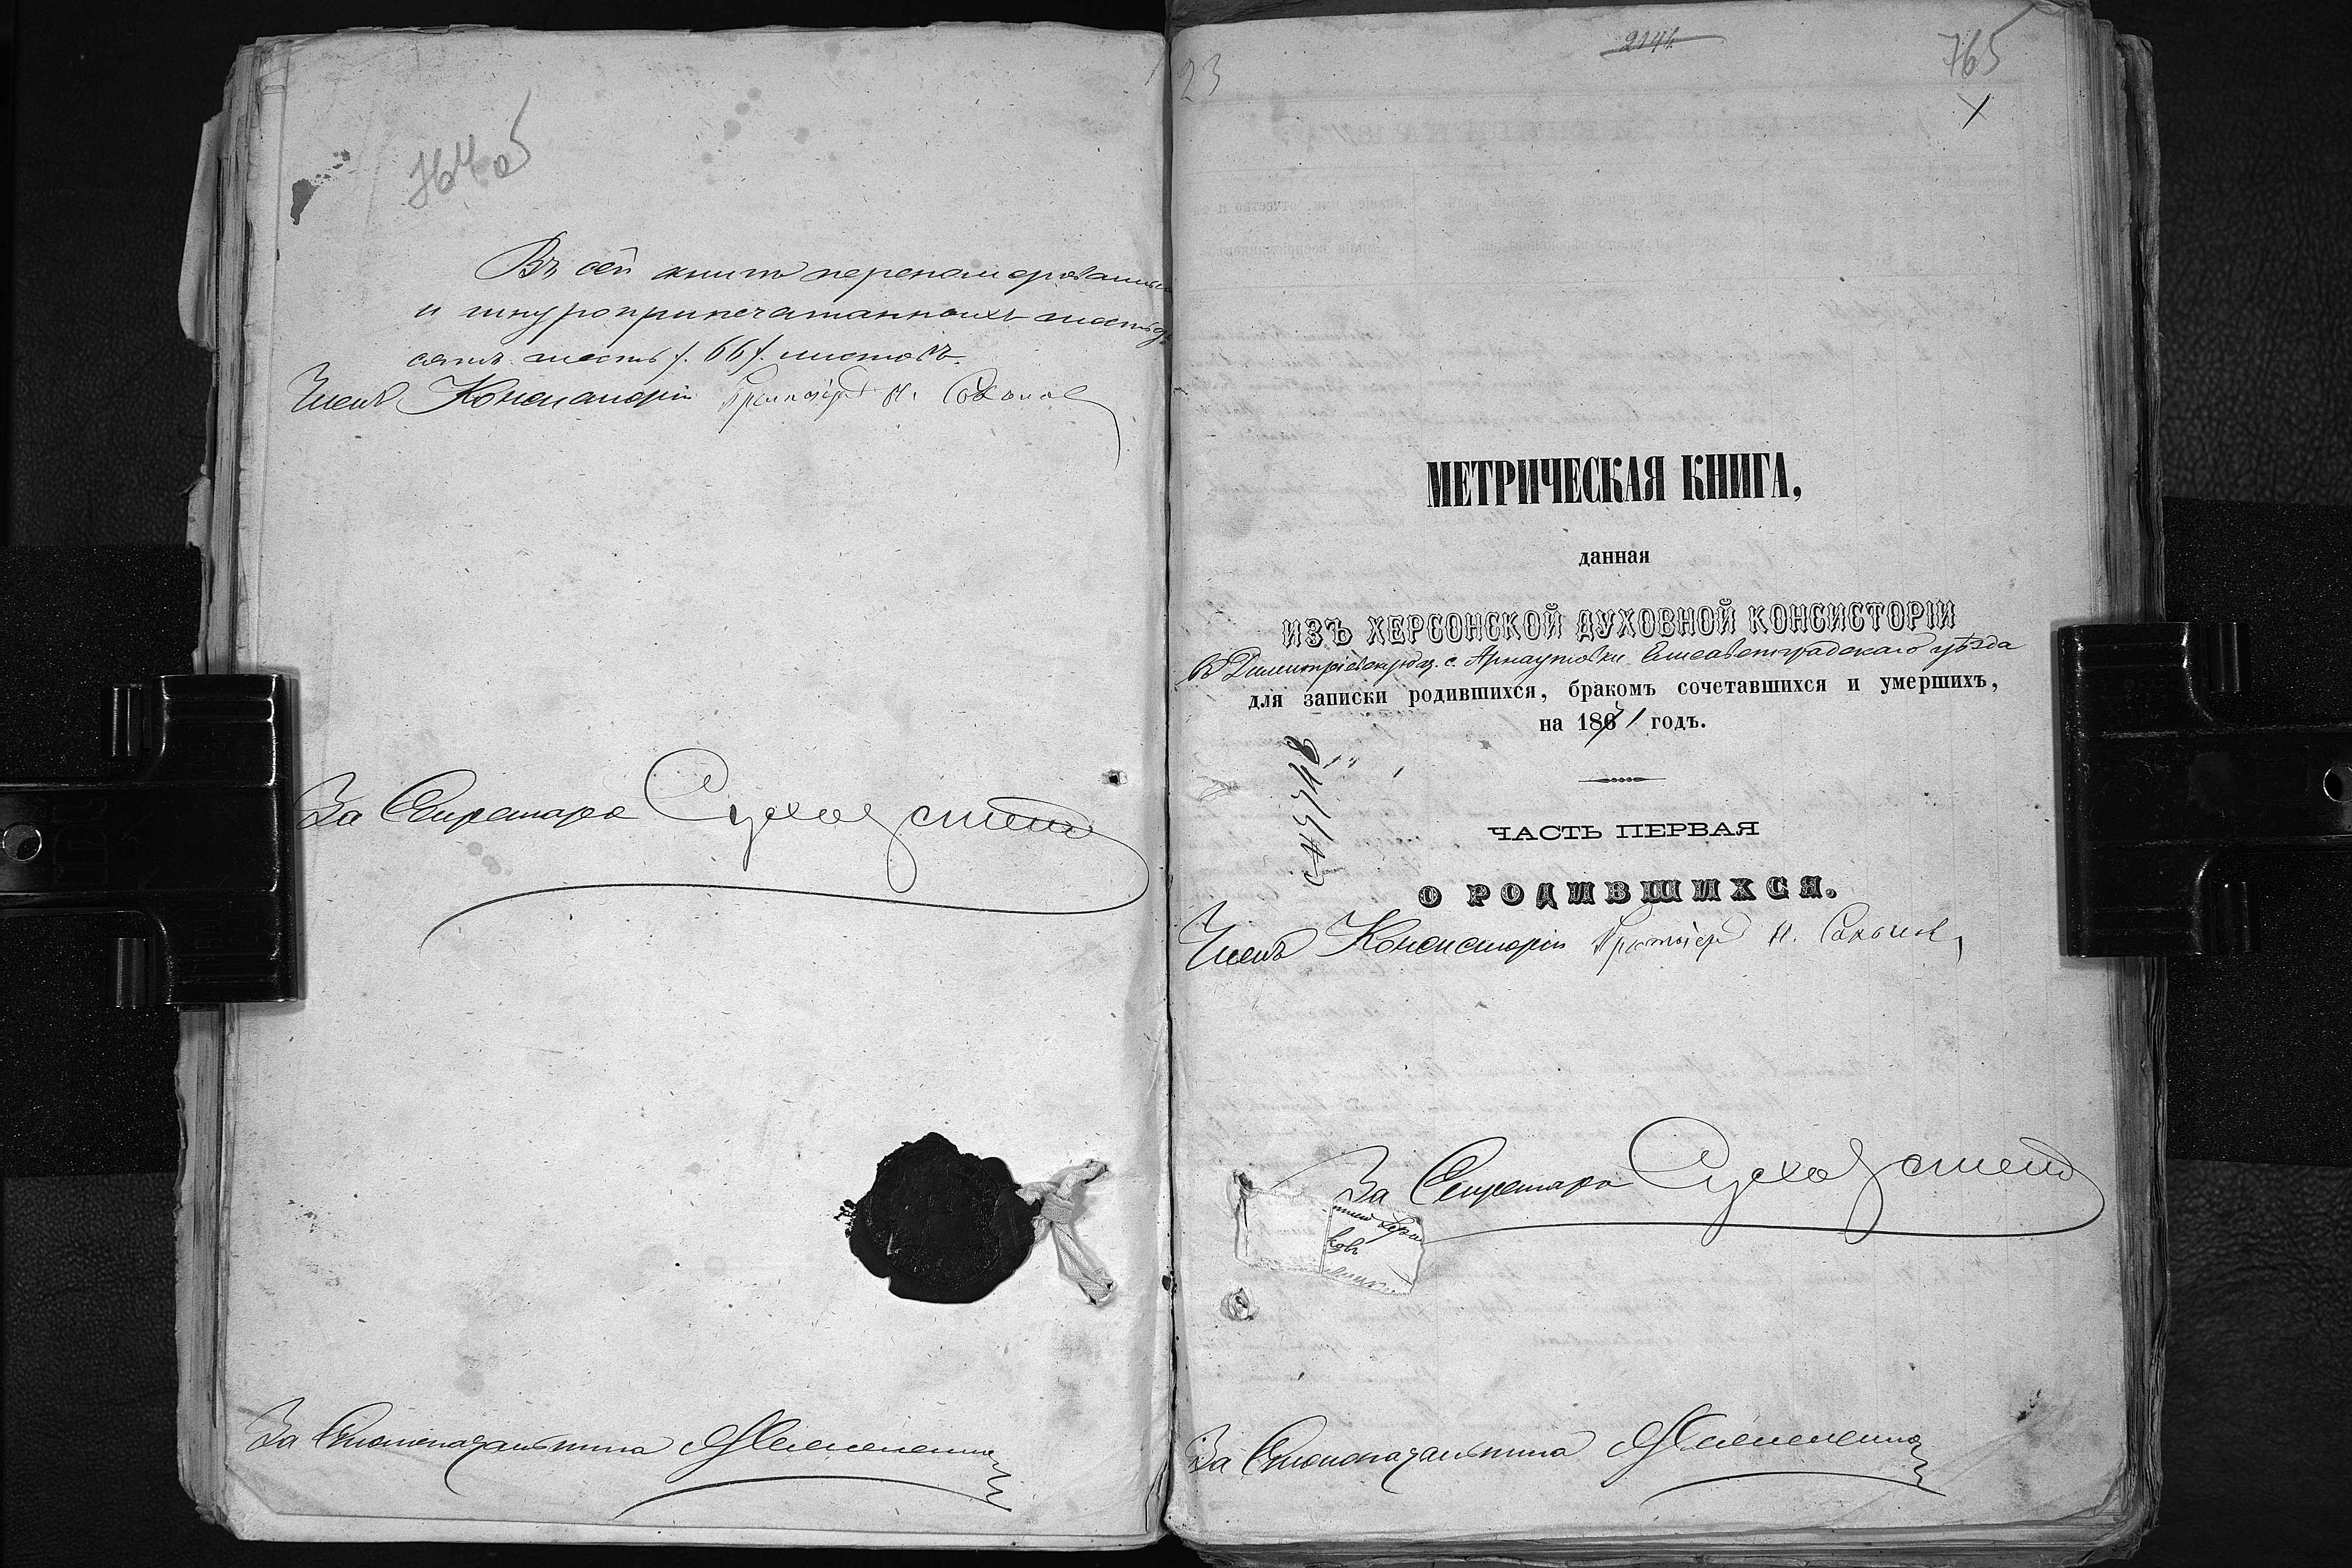 764об
Въ сей книгѣ перенумерованныхъ
и шнуроприпечатанныхъ шестьде
сятъ шесть /. 66 /. листовъ.
Членъ Консисторіи Протоіерей Н. Соколов
За Секретаря
За Столоначальника
23
2144
765
МЕТРИЧЕСКАЯ КНИГА,
данная
ИЗЪ ХЕРСОНСКОЙ ДУХОВНОЙ КОНСИСТОРІИ
въ Димитріевскую ц. с. Арнаутовки Елисаветградскаго уѣзда
для записки родившихся, бракомъ сочетавшихся и умершихъ,
на 1871 годъ.
ЧАСТЬ ПЕРВАЯ
О РОДИВШИХСЯ.
Членъ Консисторіи Протоіерей Н. Соколов
За Секретаря
За Столоначальника